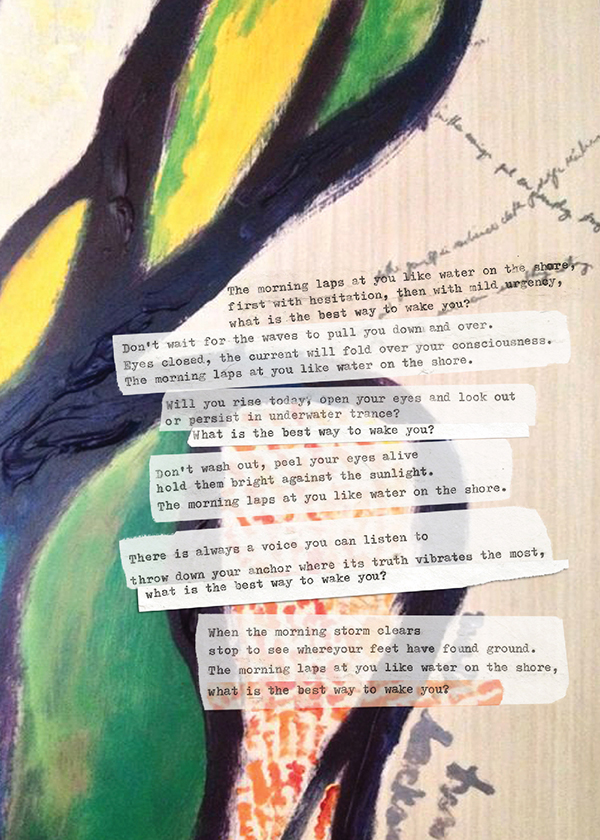 The morning laps at you like water on the shore,
first with hesitation, then with mild urgency,
what is the best way to wake you?
Don't wait for the waves to pull you down and over.
Eyes closed, the current will fold over your consciousness.
The morning laps at you like water on the shore.
Will you rise today, open your eyes and look out
or persist in underwater trance?
What is the best way to wake you?
Don't wash out, peel your eyes alive
hold them bright against the sunlight.
The morning laps at you like water on the shore.
There is always a voice you can listen to
throw down your anchor where its truth vibrates the most,
what is the best way to wake you?
When the morning storm clears
stop to see whereyour feet have found ground.
The morning laps at you like water on the shore,
what is the best way to wake you?